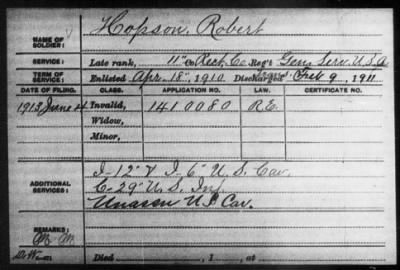 NAME OF SOLDIER: Hopson, Robert
SERVICE: Late rank, 11" Co Rech Co Reg't Gen Serv. U.S.A
TERM OF SERVICE: Enlisted Apr. 18", 1910. Discharged Feb 9, 1911.
DATE OF FILING. CLASS. APPLICATION NO. LAW. CERTIFICATE NO.
1913 June 4 Invalid, 1410080 R.E.
Widow,
Minor,
I-12" & I-6" U.S. Cav.
ADDITIONAL SERVICES: C-29" U.S. Inf
Unassn U.S Cav.
REMARKS:
Died , 1 , at